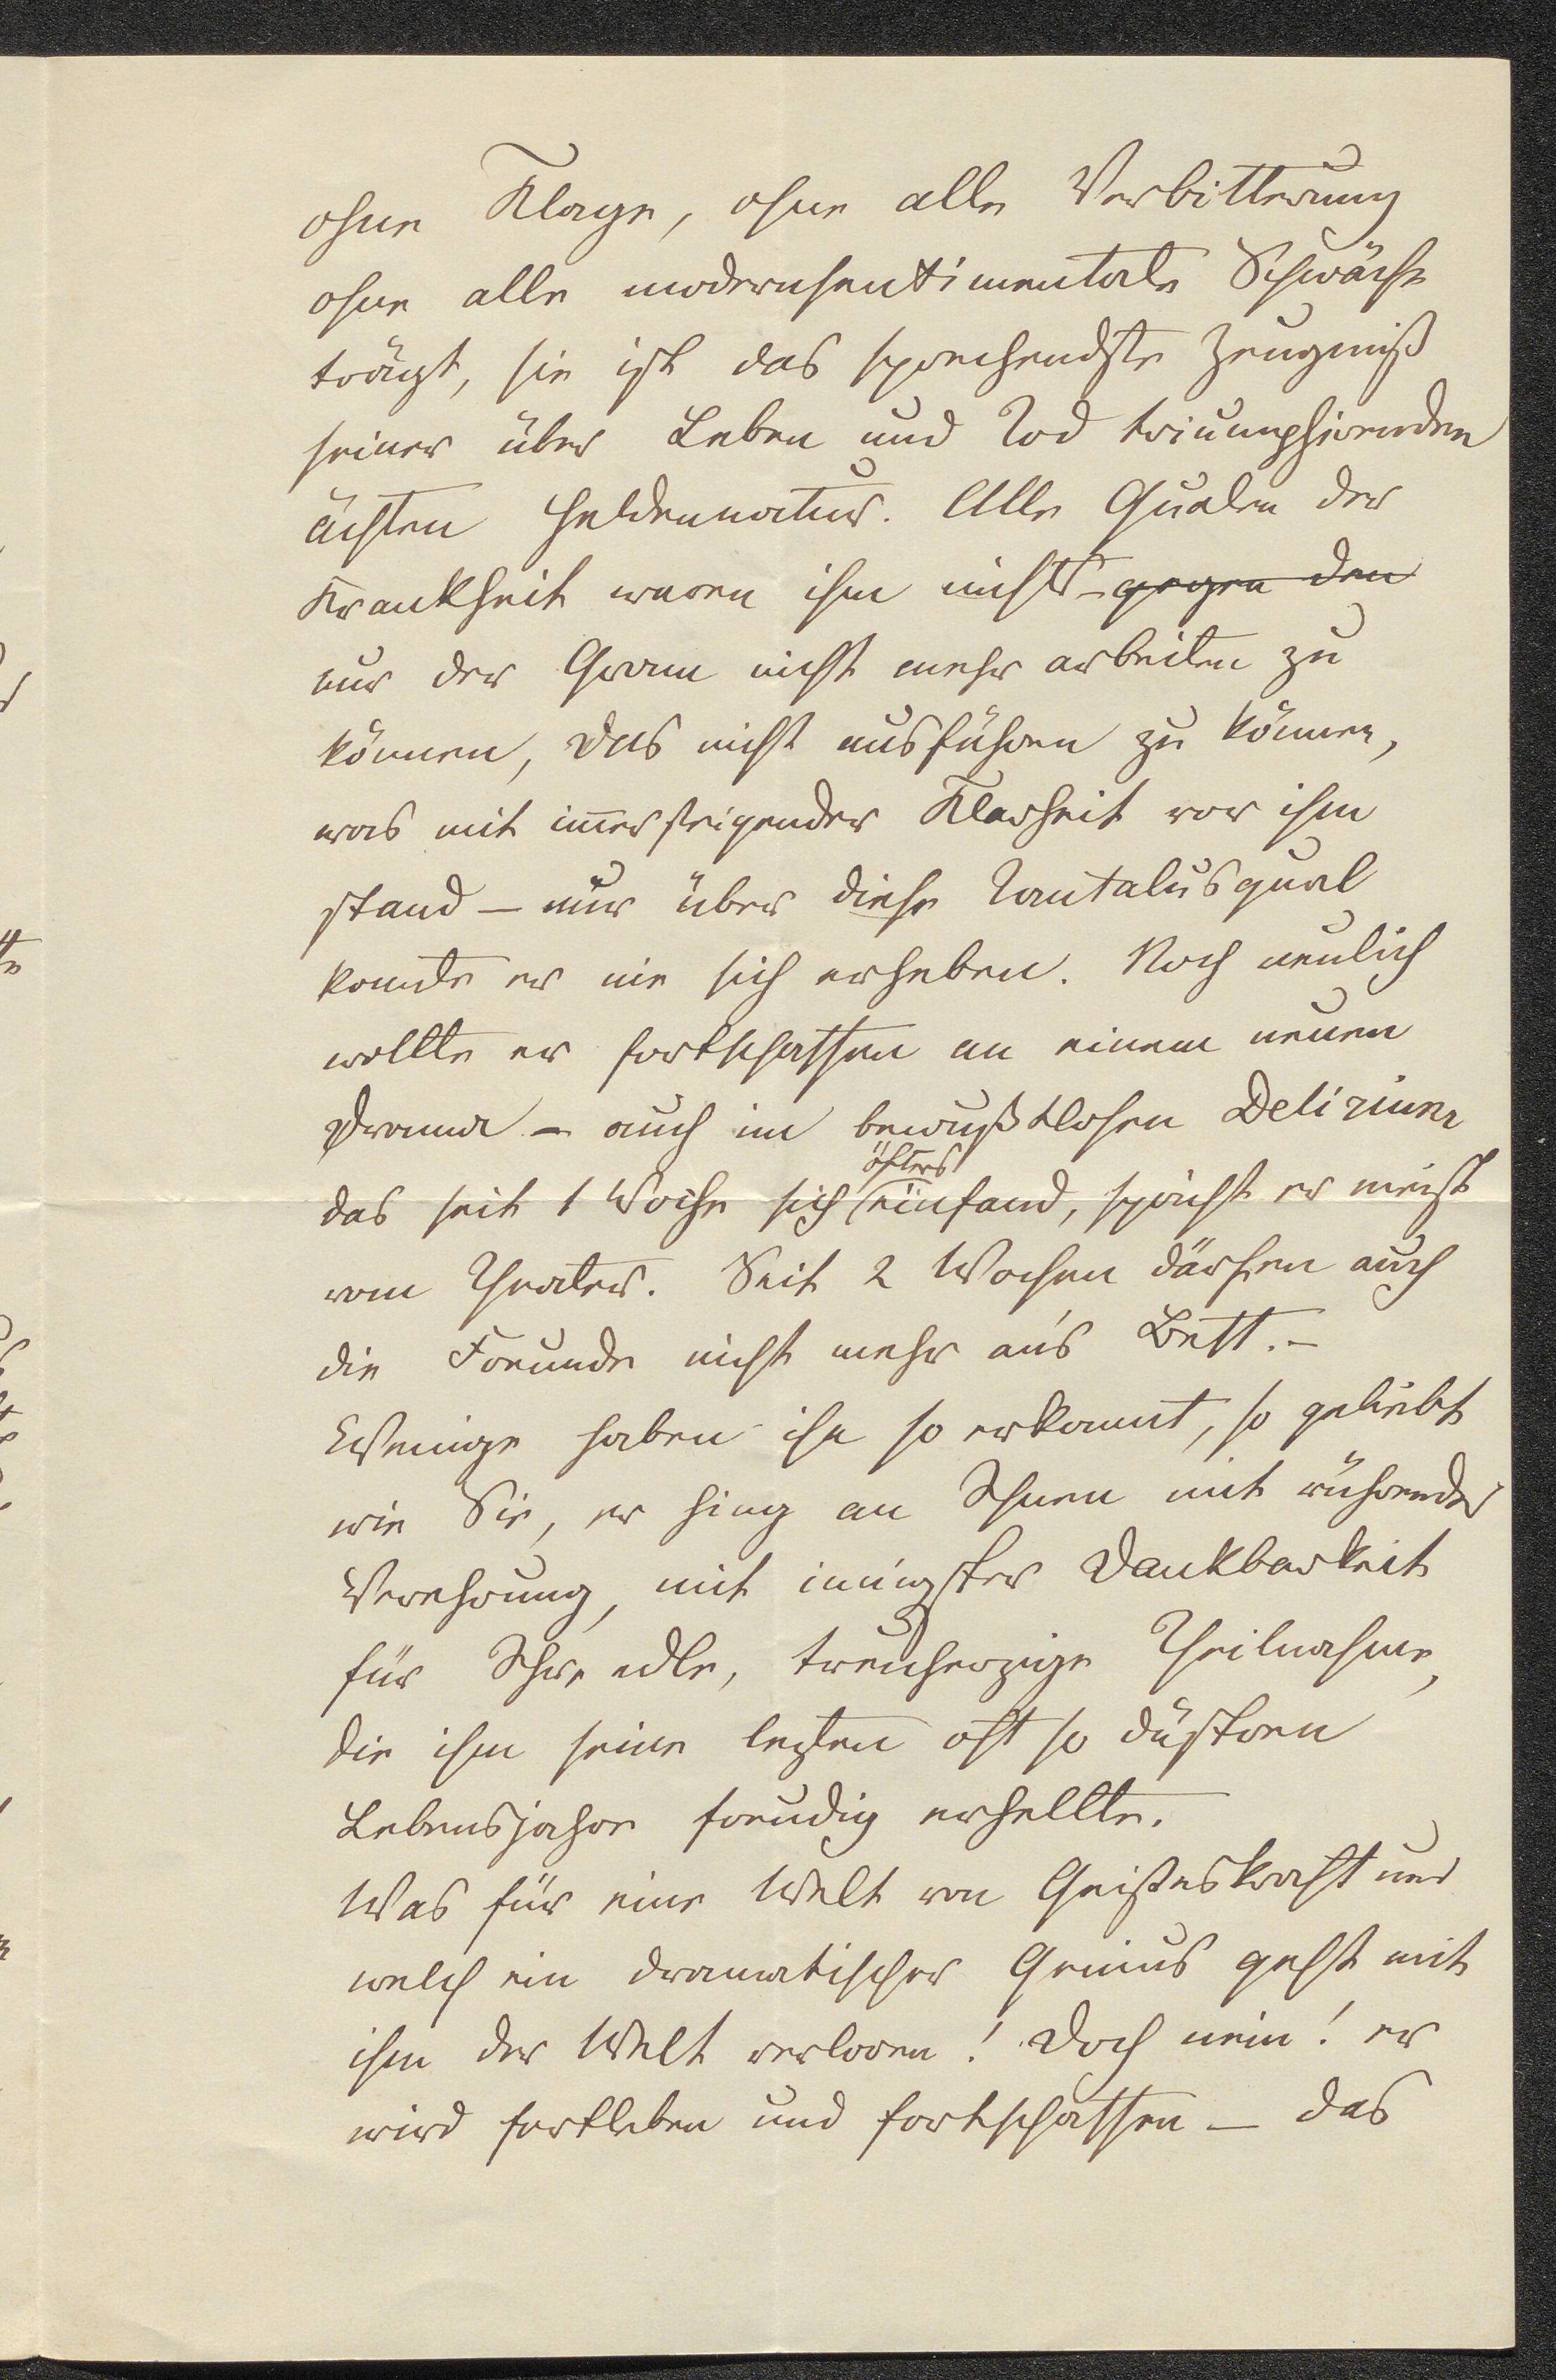 ohne Klage, ohne alle Verbitterung
ohne alle modernsentimentale Schwäche
trägt, sie ist das sprechendste Zeugniß
seiner über Leben und Tod triumphirenden
ächten Heldennatur. Alle Qualen der
Krankheit waren ihm nichts – gegen den
nur der Gram nicht mehr arbeiten zu
können, das nicht ausführen zu können,
was mit immer steigender Klarheit vor ihm
stand – nur über diese Tantalusqual
konnte er nie sich erheben. Noch neulich
wollte er fortschaffen an einem neuen
Drama – auch im bewußtlosen Delirium
öfters
das seit 1 Woche sich einfand, spricht er meist
vom Theater. Seit 2 Wochen dürfen auch
die Freunde nicht mehr an's Bett. –
Wenige haben ihn so erkannt, so geliebt
wie Sie, er hing an Ihnen mit rührender
Verehrung, mit innigster Dankbarkeit
für Ihre edle, treuherzige Theilnahme,
die ihm seine lezten oft so düstren
Lebensjahre freudig erhellte.
Was für eine Welt von Geisteskraft und
welch ein dramatischer Genius geht mit
ihm der Welt verloren! Doch nein! er
wird fortleben und fortschaffen – das